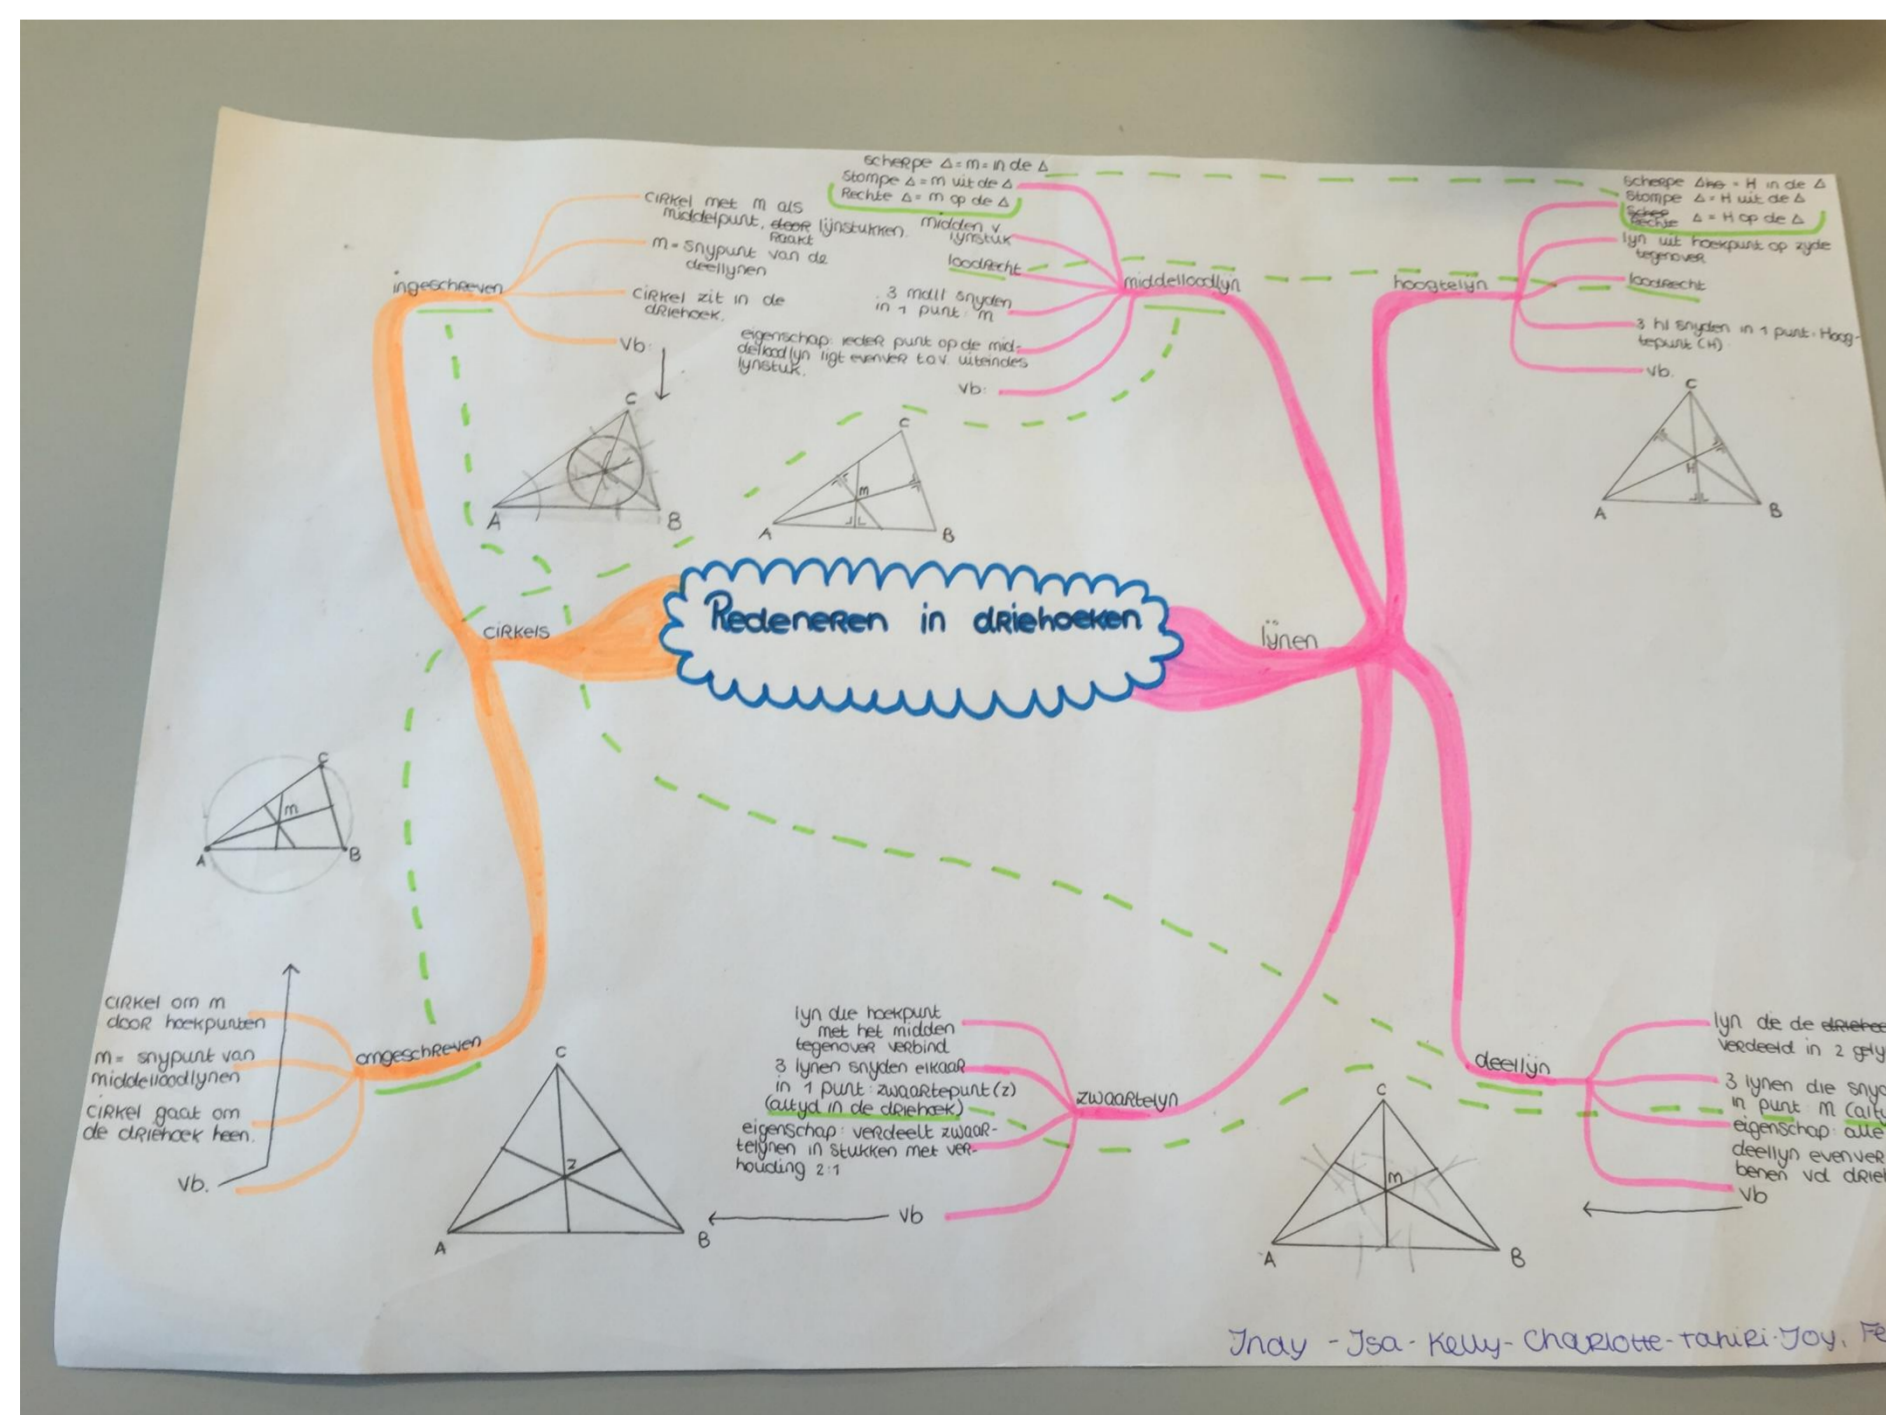 Redeneren in driehoeken
cirkels
ingeschreven
cirkel met m als
middelpunt, door lijnstukken.
raakt
m = snypunt van de
deellynen
cirkel zit in de
driehoek.
vb:
C
A
B
omgeschreven
cirkel om m
door hoekpunten
m = snypunt van
middelloodlynen
cirkel gaat om
de driehoek heen.
vb.
C
m
A
B
lijnen
middelloodlyn
scherpe Δ = m = in de Δ
Stompe Δ = m uit de Δ
Rechte Δ = m op de Δ
midden v.
lynstuk
loodrecht
3 mdll snyden
in 1 punt: m
eigenschap: ieder punt op de mid-
delloodlyn ligt evenver t.o.v. uiteindes
lynstuk.
vb:
C
m
A
B
hoogtelyn
scherpe Δ = H in de Δ
Stompe Δ = H uit de Δ
Scher
Rechte Δ = H op de Δ
lyn uit hoekpunt op zyde
tegenover
loodrecht
3 hl snyden in 1 punt: Hoog-
tepunt (H)
vb.
C
H
A
B
zwaartelyn
lyn die hoekpunt
met het midden
tegenover verbind
3 lynen snyden elkaar
in 1 punt: zwaartepunt (z)
(altyd in de driehoek)
eigenschap: verdeelt zwaar-
telynen in stukken met ver-
houding 2:1
vb
C
z
A
B
deellyn
lyn die de
verdeeld in 2
3 lynen die
in punt m
eigenschap: alle
deellyn
benen vd
vb
C
m
A
B
Indy - Isa - Kelly - Charlotte - Tahiri - Joy,